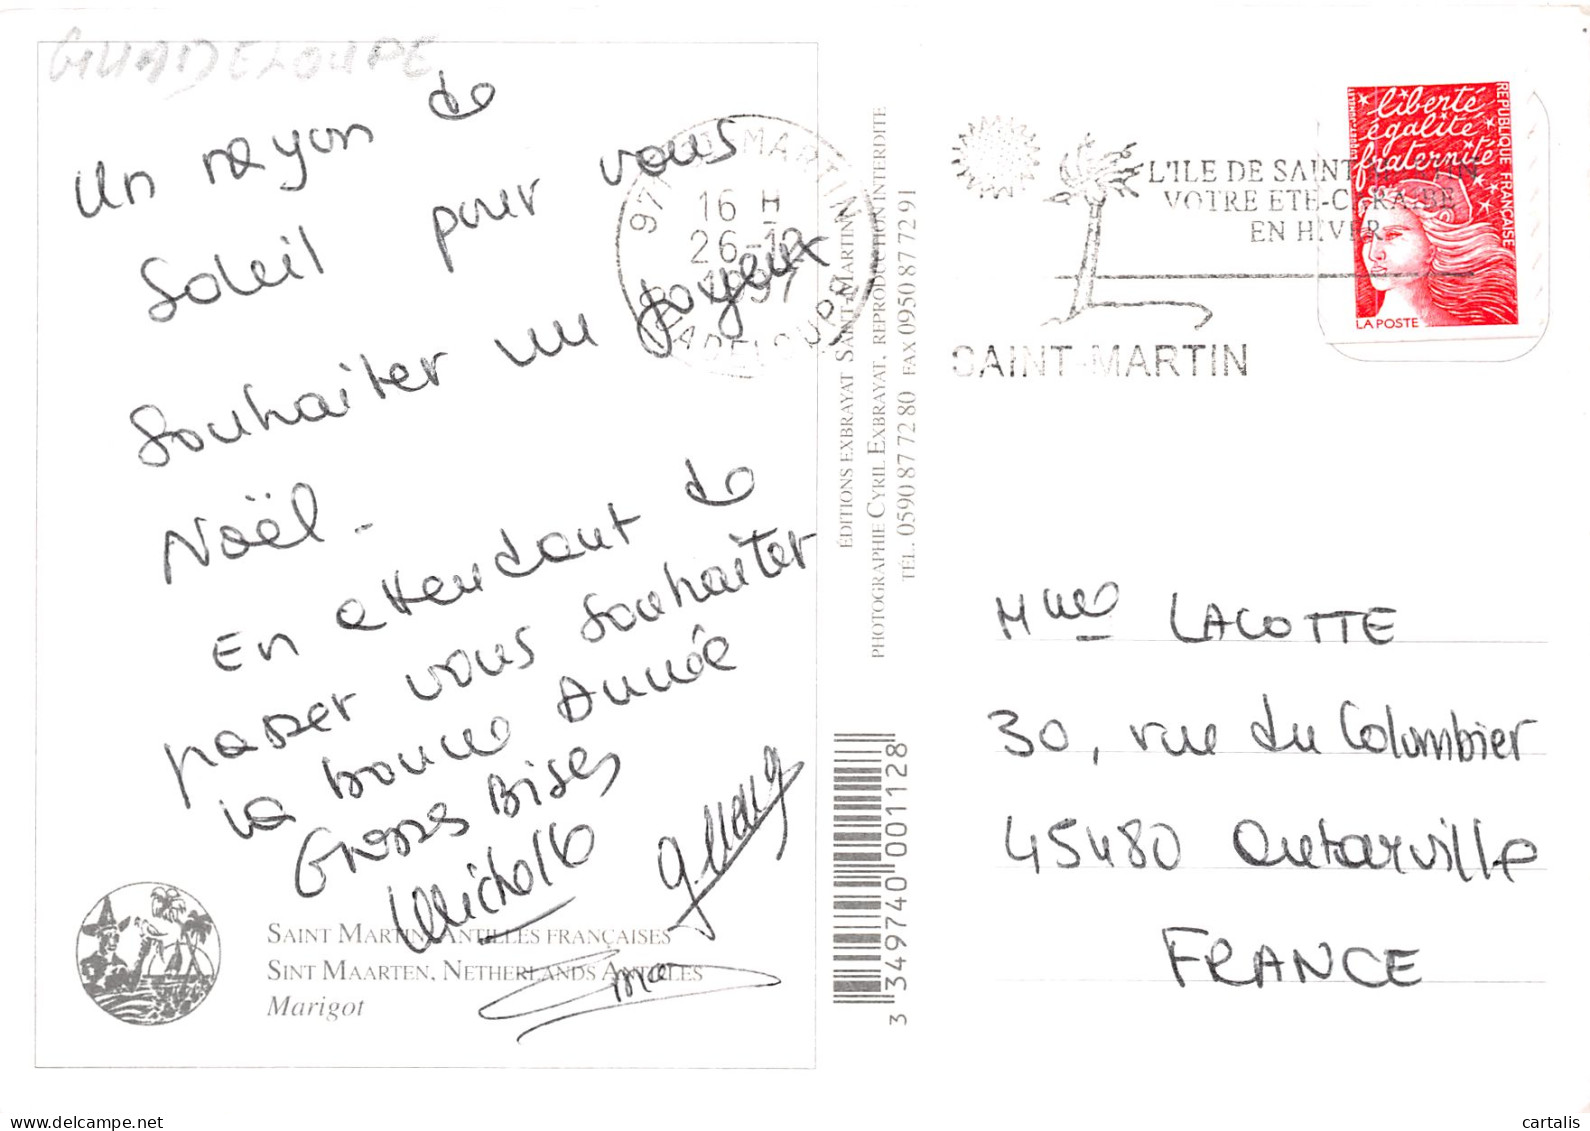 GUADELOUPE
Un rayon de
Soleil pour vous
Souhaiter un joyeux
Noël -
En attendant de
passer vous souhaiter
la bonne Année
Grosses Bises
SAINT MARTIN, ANTILLES FRANÇAISES
SINT MAARTEN, NETHERLANDS ANTILLES
Marigot
ÉDITIONS EXBRAYAT SAINT-MARTIN
PHOTOGRAPHIE CYRIL EXBRAYAT, REPRODUCTION INTERDITE
TÉL. 0590 87 72 80 FAX 0950 87 72 91
3 349740 001128
ST MARTIN
16 H
26-12
1997
GUADELOUPE
L'ILE DE SAINT-MARTIN
VOTRE ETE-CARAIBE
EN HIVER
SAINT-MARTIN
liberté
égalité
fraternité
REPUBLIQUE FRANÇAISE
LA POSTE
Mme LACOTTE
30, rue du Colombier
45480 Outarville
FRANCE
delcampe.net
cartalis